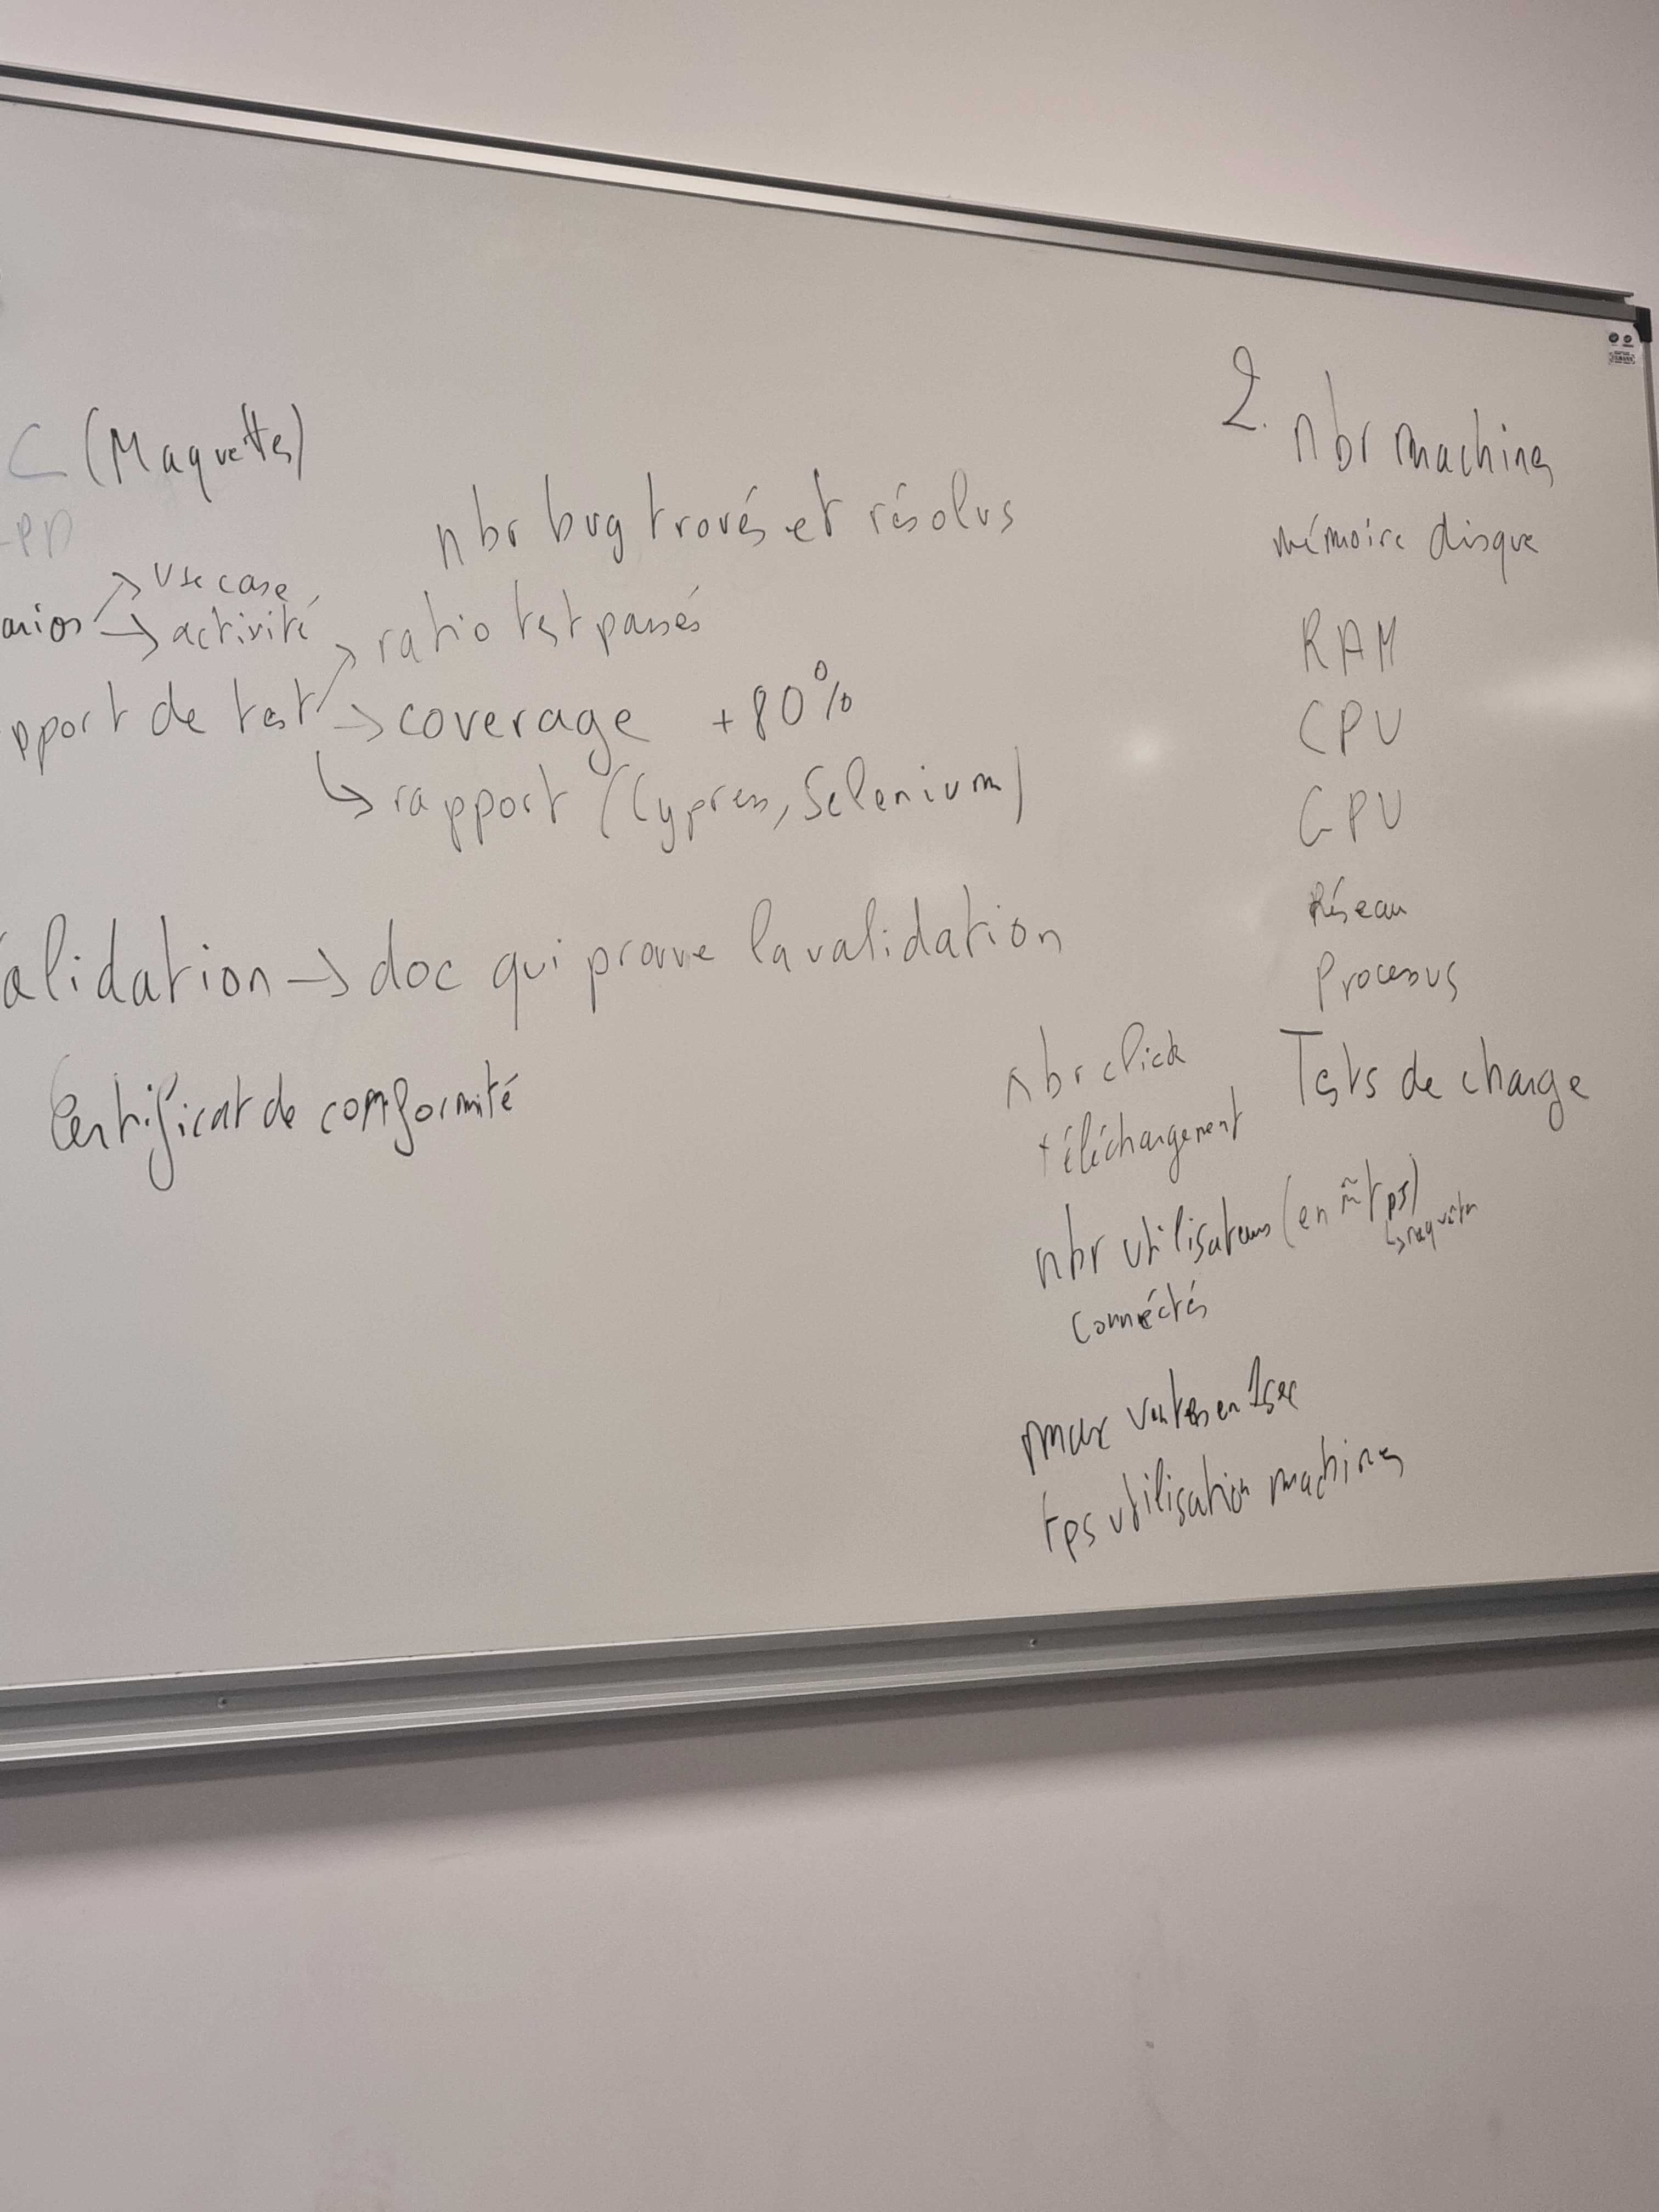 C (Maquettes)
nbr bug trouvés et résolus
use case
→ activité
ratio test passés
pport de test → coverage +80%
↳ rapport (Cypress, Selenium)
alidation → doc qui prouve la validation
Certificat de conformité
2. nbr machines
mémoire disque
RAM
CPU
GPU
Réseau
Processus
Tests de charge
nbr click
téléchargement
nbr utilisateurs (en m̃ tps)
↳ requêtes
connéctés
max ventes en 1 sec
tps utilisation machines